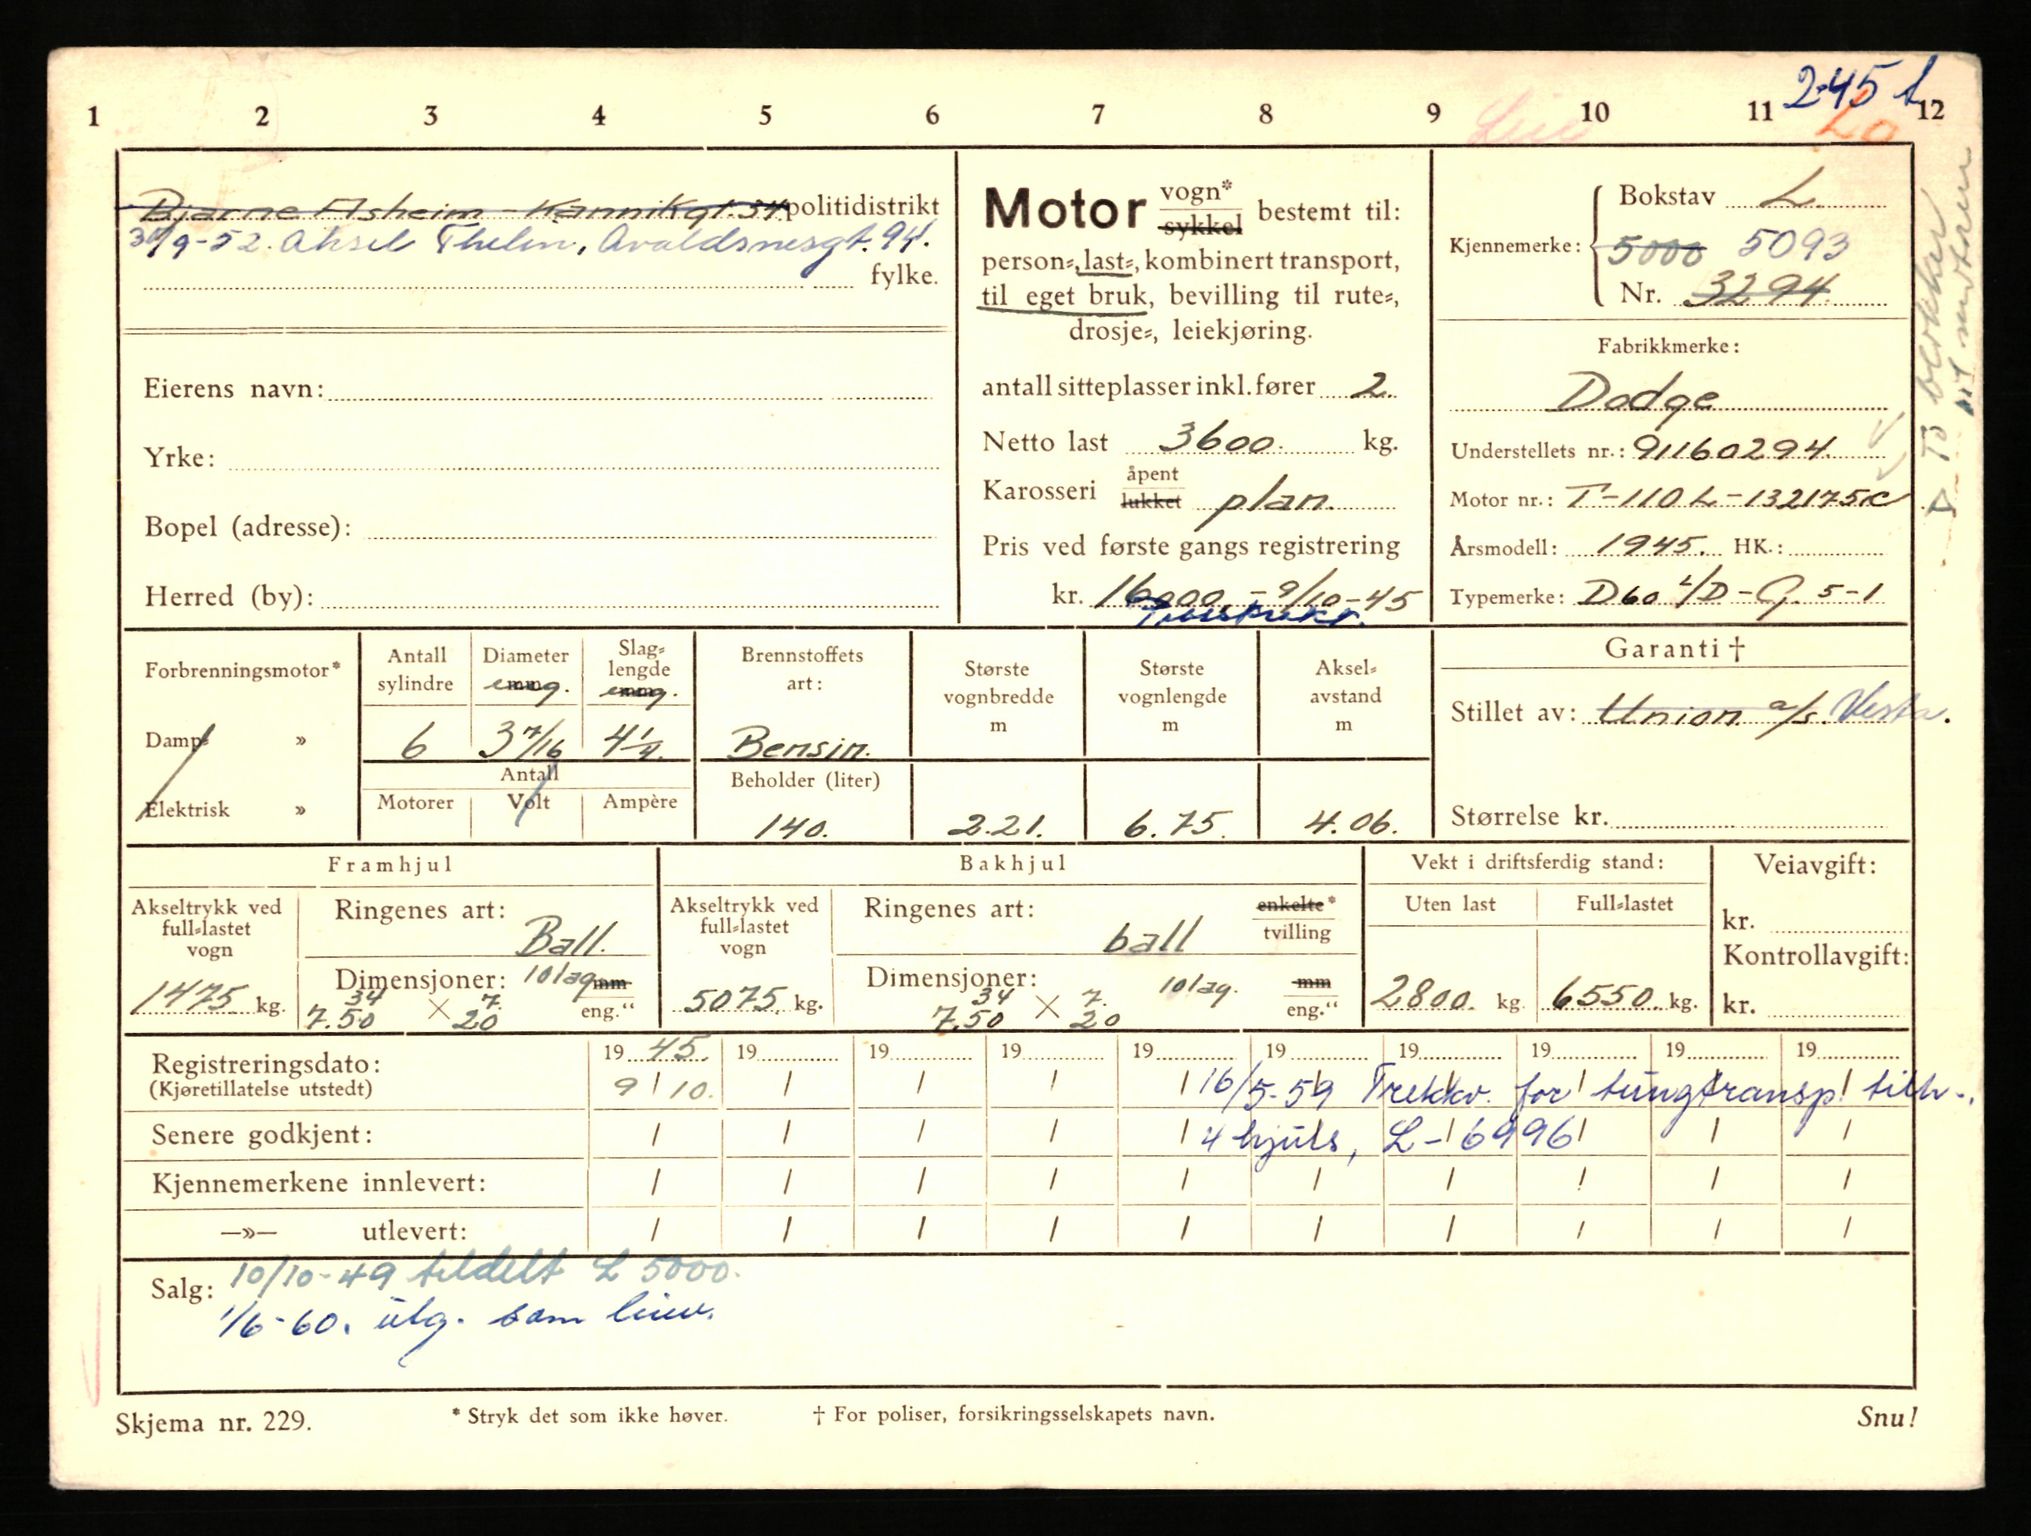 1 2 3 4 5 6 7 8 9 10 11 2-45 t 12
Bjarne Asheim - Kannikgt. 34 politidistrikt
30/9-52. Aksel Thelin, Avaldsnesgt. 94.
fylke.
Eierens navn:
Yrke:
Bopel (adresse):
Herred (by):
Motor vogn* sykkel bestemt til:
person-, last-, kombinert transport,
til eget bruk, bevilling til rute-,
drosje-, leiekjøring.
antall sitteplasser inkl. fører 2.
Netto last 3600. kg.
Karosseri åpent lukket plan.
Pris ved første gangs registrering
kr. 16000,- 9/10-45
Bokstav L.
Kjennemerke: 5000 5093
Nr. 3294.
Fabrikkmerke:
Dodge
Understellets nr.: 91160294.
Motor nr.: T-110L-132175C
Årsmodell: 1945. HK.:
Typemerke: D60 L/D-G. 5-1
Forbrenningsmotor*
Damp- »
Elektrisk »
Antall sylindre
6
Diameter mm eng.
3 7/16
Slag-lengde mm eng.
4 1/4.
Antall
Motorer Volt Ampère
Brennstoffets art:
Bensin.
Beholder (liter)
140.
Største vognbredde m
2.21.
Største vognlengde m
6.75.
Aksel-avstand m
4.06.
Garanti †
Stillet av: Union a/s. Vesta.
Størrelse kr.
Framhjul
Akseltrykk ved full-lastet vogn
1475 kg.
Ringenes art: Ball.
Dimensjoner: 10 lag mm eng."
34 7.50 × 7. 20
Bakhjul
Akseltrykk ved full-lastet vogn
5075. kg.
Ringenes art: ball
enkelte* tvilling
Dimensjoner: 10 lag. mm eng."
34 7.50 × 7. 20
Vekt i driftsferdig stand:
Uten last Full-lastet
2800. kg. 6550. kg.
Veiavgift:
kr.
Kontrollavgift:
kr.
Registreringsdato: 19 45. 19 19 19 19 19 19 19 19 19
(Kjøretillatelse utstedt) 9 / 10. 16/5-59 Trekkv. for tungtransp. tilh.
Senere godkjent: 4 hjuls, L-6996
Kjennemerkene innlevert:
—»— utlevert:
Salg: 10/10-49 tildelt L 5000.
1/6-60. utg. som
Skjema nr. 229. * Stryk det som ikke høver. † For poliser, forsikringsselskapets navn. Snu!